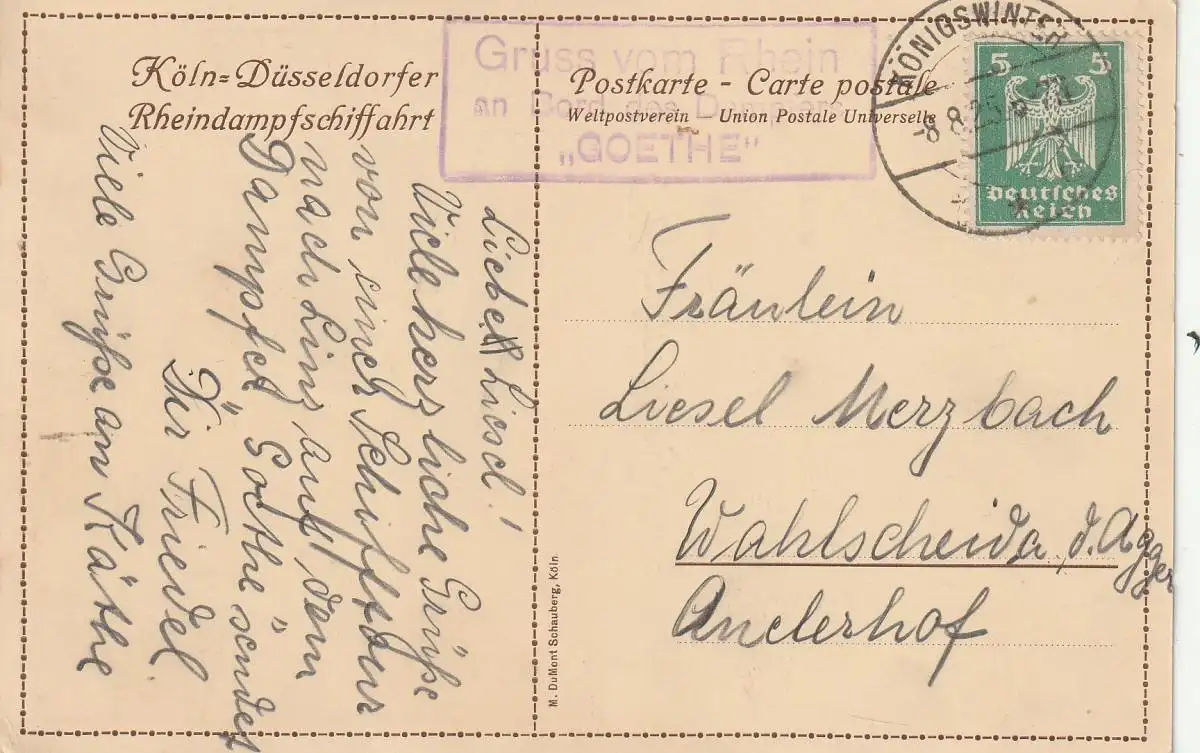 Köln=Düsseldorfer
Rheindampfschiffahrt
Gruss vom Rhein
an Bord des Dampfers
„GOETHE"
Postkarte - Carte postale
Weltpostverein - Union Postale Universelle
KÖNIGSWINTER
-8.8.25
5 5
Deutsches
Reich
Liebe Liesel!
Viele herzliche Grüße
von einer Schifftour
nach Linz auf dem
Dampfer „Goethe" sendet
Dir Friedel
Viele Grüße an Käthe
Fräulein
Liesel Merzbach
Wahlscheid a. d. Agger
Auelerhof
M. DuMont Schauberg, Köln.